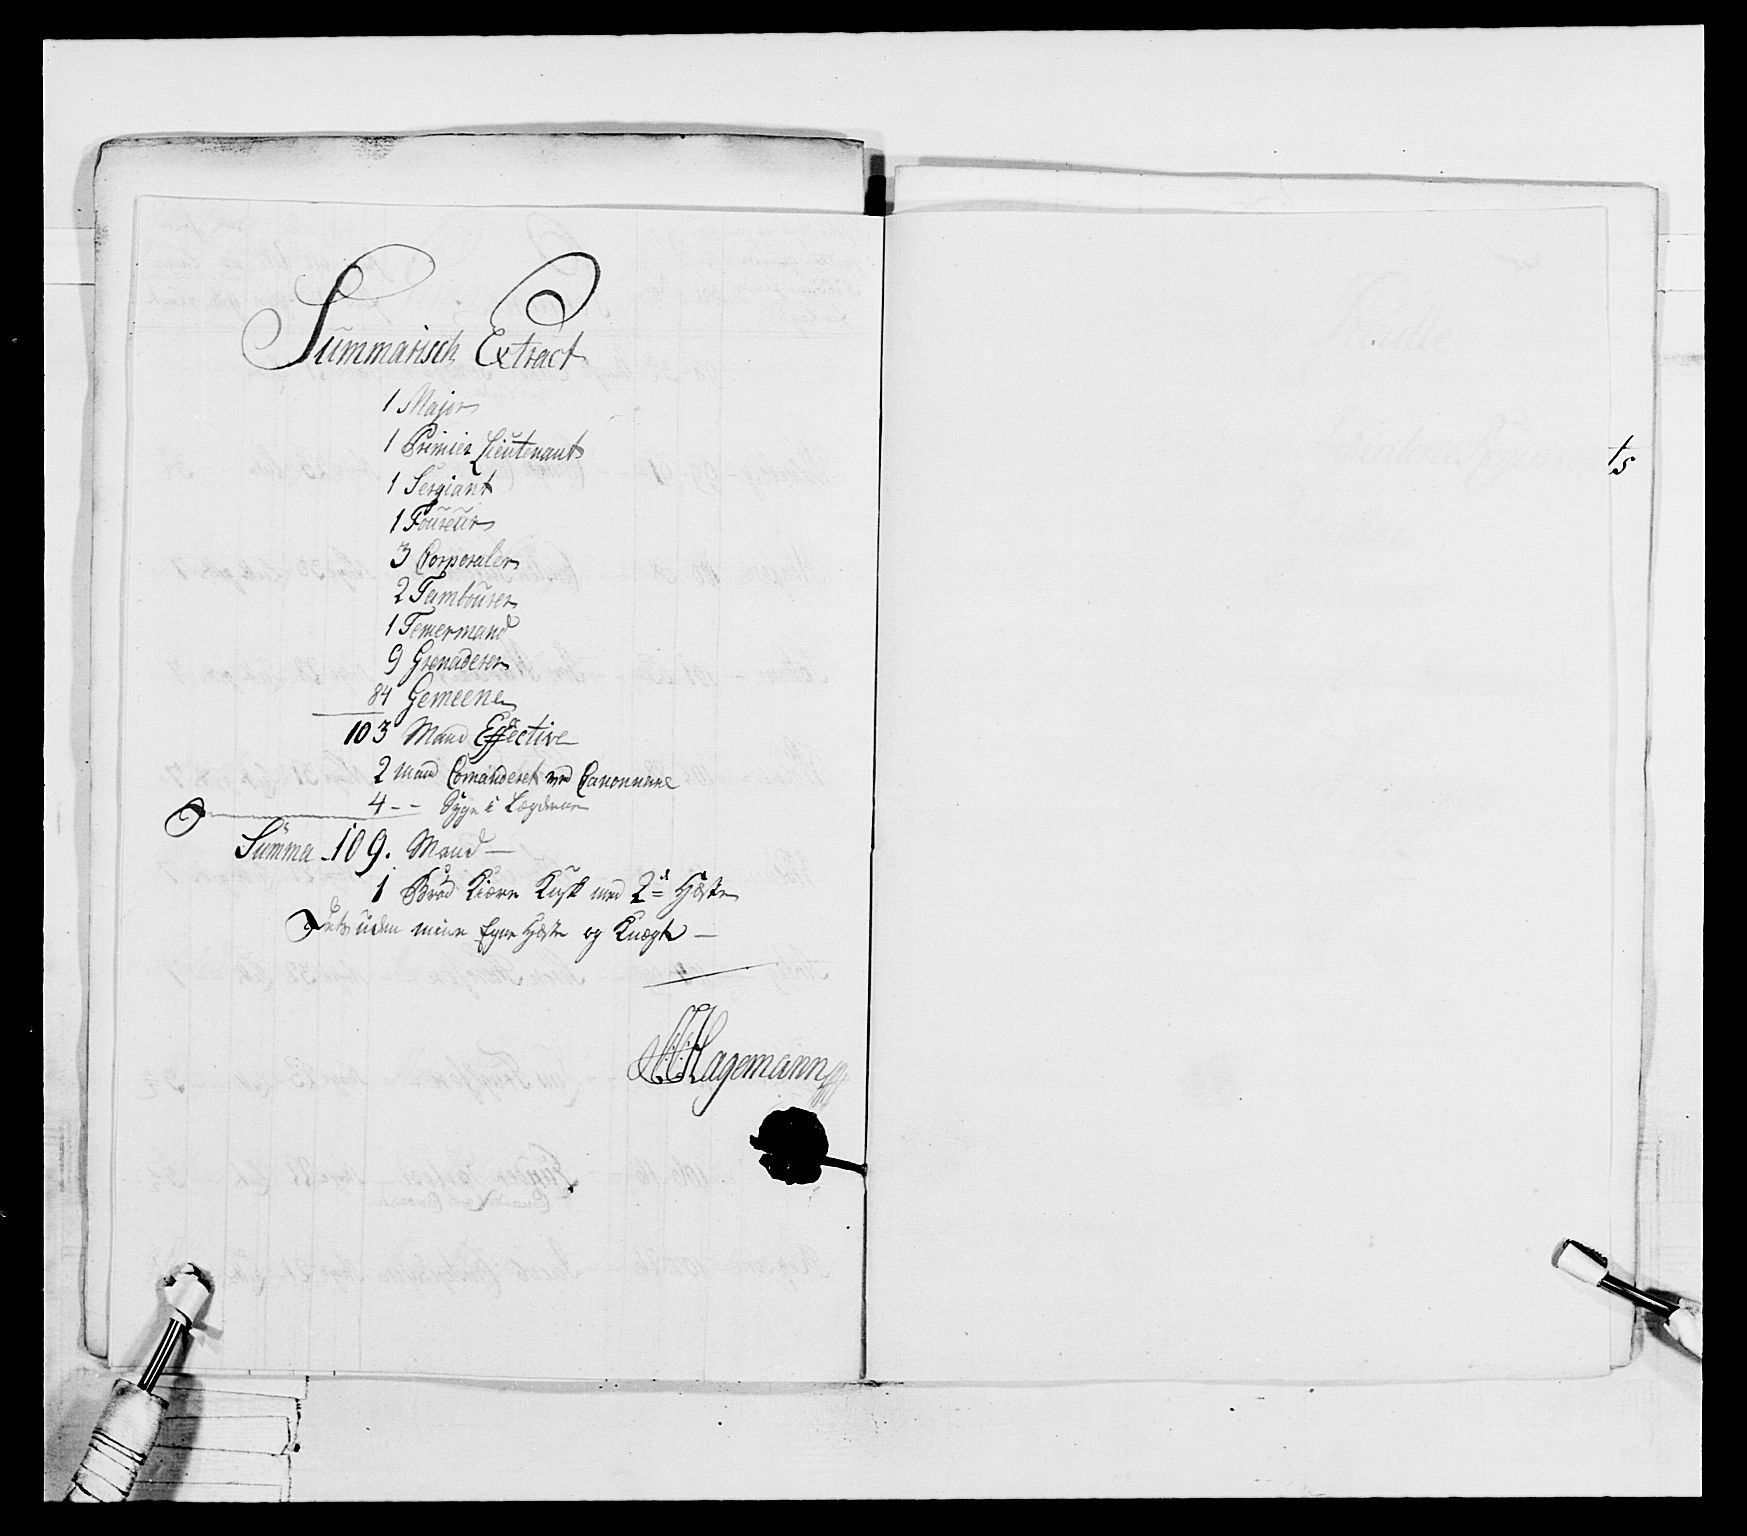 Summarisch Extract
1 Major
1 Premier Lieutenant
1 Sergiant
1 Foureur
3 Corporaler
2 Tambourer
1 Temermand
9 Grenaderer
84 Gemeene
103 Mand Effective
2 mand Comanderet ved Canonnene
4 -- Syge i Lægderne
Summa 109. Mand —
1 Brød Kiære Kusk med 2de Hæste
uden mine Egne Hæste og Knægt —
Hagemann